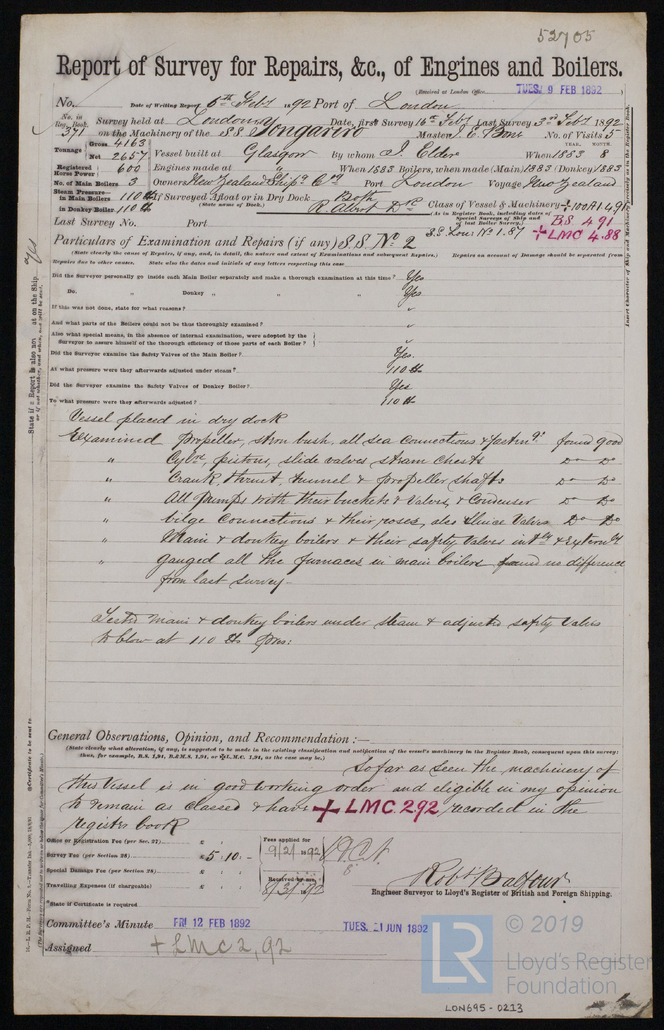 52705
Report of Survey for Repairs, &c., of Engines and Boilers.
(Received at London Office TUES. 9 FEB 1892
No. Date of Writing Report 6th Feby 1892 Port of London
No. in Reg. Book. 371 Survey held at London Date, first Survey 16th Last Survey 3rd Feby 1892
on the Machinery of the S.S. Tongariro Master J. E. Bone No. of Visits 5
Tonnage Gross 4163 Net 2657 Vessel built at Glasgow By whom J. Elder When 1883 YEAR. MONTH 8
Registered Horse Power 600 Engines made at " By whom " When 1883 Boilers, when made (Main) 1883 (Donkey) 1883
No. of Main Boilers 3 Owners New Zealand Ship'g Cpy Port London Voyage New Zealand
Steam Pressure in Main Boilers 110 lb If Surveyed Afloat or in Dry Dock Both
in Donkey Boiler 110 lb (State name of Dock.) R. Albert Dk Class of Vessel & Machinery +100A1 4,91
(As in Register Book, including dates of Special Surveys of Ship and of last Boiler Survey.) BS 4.91
Last Survey No. Port S.S. Lon: No 1. 87 + LMC 4.88
Particulars of Examination and Repairs (if any) S.S. No. 2
(State clearly the cause of Repairs, if any, and, in detail, the nature and extent of Examinations and subsequent Repairs.) Repairs on account of Damage should be separated from
Repairs due to other causes. State also the dates and initials of any letters respecting this case
Did the Surveyor personally go inside each Main Boiler separately and make a thorough examination at this time? Yes
Do. " Donkey " " " Yes
If this was not done, state for what reasons? "
And what parts of the Boilers could not be thus thoroughly examined? "
Also what special means, in the absence of internal examination, were adopted by the
Surveyor to assure himself of the thorough efficiency of those parts of each Boiler? "
Did the Surveyor examine the Safety Valves of the Main Boiler? Yes.
At what pressure were they afterwards adjusted under steam? 110 lb
Did the Surveyor examine the Safety Valves of Donkey Boiler? Yes
To what pressure were they afterwards adjusted? 110 lb
Vessel placed in dry dock
Examined propeller, stern bush, all sea connections & fasten'gs found good
" Cylrs, pistons, slide valves steam chests Do Do
" Crank, thrust, tunnel & propeller shafts Do Do
" All pumps with their buckets & Valves, & Condenser Do Do
" bilge Connections & their roses, also Sluice Valves Do Do
" Main & donkey boilers & their safety Valves intly & externly
" gauged all the furnaces in main boilers found no difference
from last survey.
Tested main & donkey boilers under steam & adjusted safety Valves
to blow at 110 lbs pres:
General Observations, Opinion, and Recommendation:—
(State clearly what alteration, if any, is suggested to be made in the existing classification and notification of the vessel's machinery in the Register Book, consequent upon this survey:
thus, for example, B.S. 1,94, B.&M.S. 1,94, or + L.M.C. 1,94, as the case may be.)
So far as seen the machinery of
this Vessel is in good working order and eligible in my opinion
to remain as classed & have + LMC. 2 92 recorded in the
register book
Office or Registration Fee (per Sec. 27) £ : : Fees applied for
Survey Fee (per Section 28) £ 5 : 10 : - 9/2/1892
Special Damage Fee (per Section 28) £ : : Received by me,
Travelling Expenses (if chargeable) £ : : 8/3/92
*State if Certificate is required
Robt. Balfour
Engineer Surveyor to Lloyd's Register of British and Foreign Shipping.
Committee's Minute FRI 12 FEB 1892 TUES. 21 JUN 1892
Assigned + LMC 2,92
© 2019
LR
Lloyd's Register
Foundation
LON695-0213